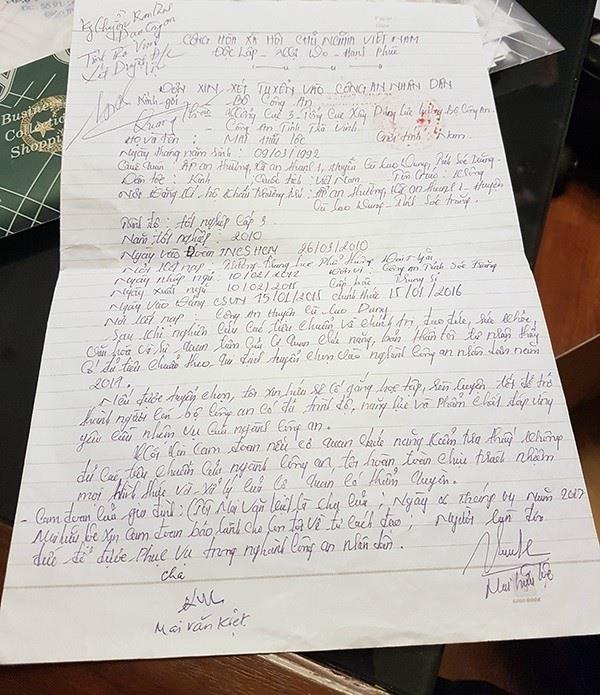 Business
Collection
Shopping
Kg Chuyển
Tỉnh Trà Vinh
CỘNG HÒA XÃ HỘI CHỦ NGHĨA VIỆT NAM
Độc Lập - Tự Do - Hạnh Phúc
ĐƠN XIN XÉT TUYỂN VÀO CÔNG AN NHÂN DÂN
Kính gởi: Bộ Công An
Tổng Cục 3 - Tổng Cục Xây Dựng Lực Lượng Bộ Công An
Công An Tỉnh Trà Vinh
Họ và tên: MAI HỮU LỘC Giới tính: Nam
Ngày tháng năm sinh: 09/03/1992
Quê quán: Ấp An Thường, Xã An Thạnh 1, Huyện Cù Lao Dung, Tỉnh Sóc Trăng.
Dân tộc: Kinh Quốc tịch: Việt Nam Tôn Giáo: Không
Nơi Đăng Kí hộ khẩu thường trú: Ấp An Thường, Xã An Thạnh 1 - Huyện
Cù Lao Dung - Tỉnh Sóc Trăng.
Trình độ: tốt nghiệp Cấp 3
Năm tốt nghiệp: 2010
Ngày vào Đoàn TNCSHCM 26/03/2010
Nơi kết nạp: Trường Trung học Phổ thông Đoàn Văn Tố
Ngày nhập ngũ: 10/02/2012 Đơn vị: Công An Tỉnh Sóc Trăng
Ngày xuất ngũ: 10/02/2015 Cấp bậc: Trung Sĩ
Ngày vào Đảng CSVN 15/01/2015 chính thức 15/01/2016
Nơi kết nạp: Công An Huyện Cù Lao Dung
Sau khi nghiên cứu các tiêu chuẩn về chính trị, đạo đức, sức khỏe,
văn hóa và sự quan tâm của cơ quan chức năng, bản thân tôi tự nhận thấy
có đủ tiêu chuẩn theo qui định tuyển chọn vào nghành Công an nhân dân năm
2017.
Nếu được tuyển chọn, tôi xin hứa sẽ cố gắng học tập, rèn luyện tốt để trở
thành người cán bộ công an có đủ trình độ, năng lực và phẩm chất đáp ứng
yêu cầu nhiệm vụ của ngành công an.
Tôi xin cam đoan nếu cơ quan chức năng kiểm tra thấy không
đủ các tiêu chuẩn của ngành công an, tôi hoàn toàn chịu trách nhiệm
mọi hình thức và xử lý của cơ quan có thẩm quyền.
- Cam đoan của gia đình: (Tôi Mai Văn Kiệt) là cha của: Ngày 02 tháng 04 Năm 2017
Mai Hữu Lộc xin cam đoan bảo lãnh cho con tôi về tư cách đạo; Người làm đơn
đức để được phục vụ trong nghành công an nhân dân.
cha
Mai Văn Kiệt
Mai Hữu Lộc